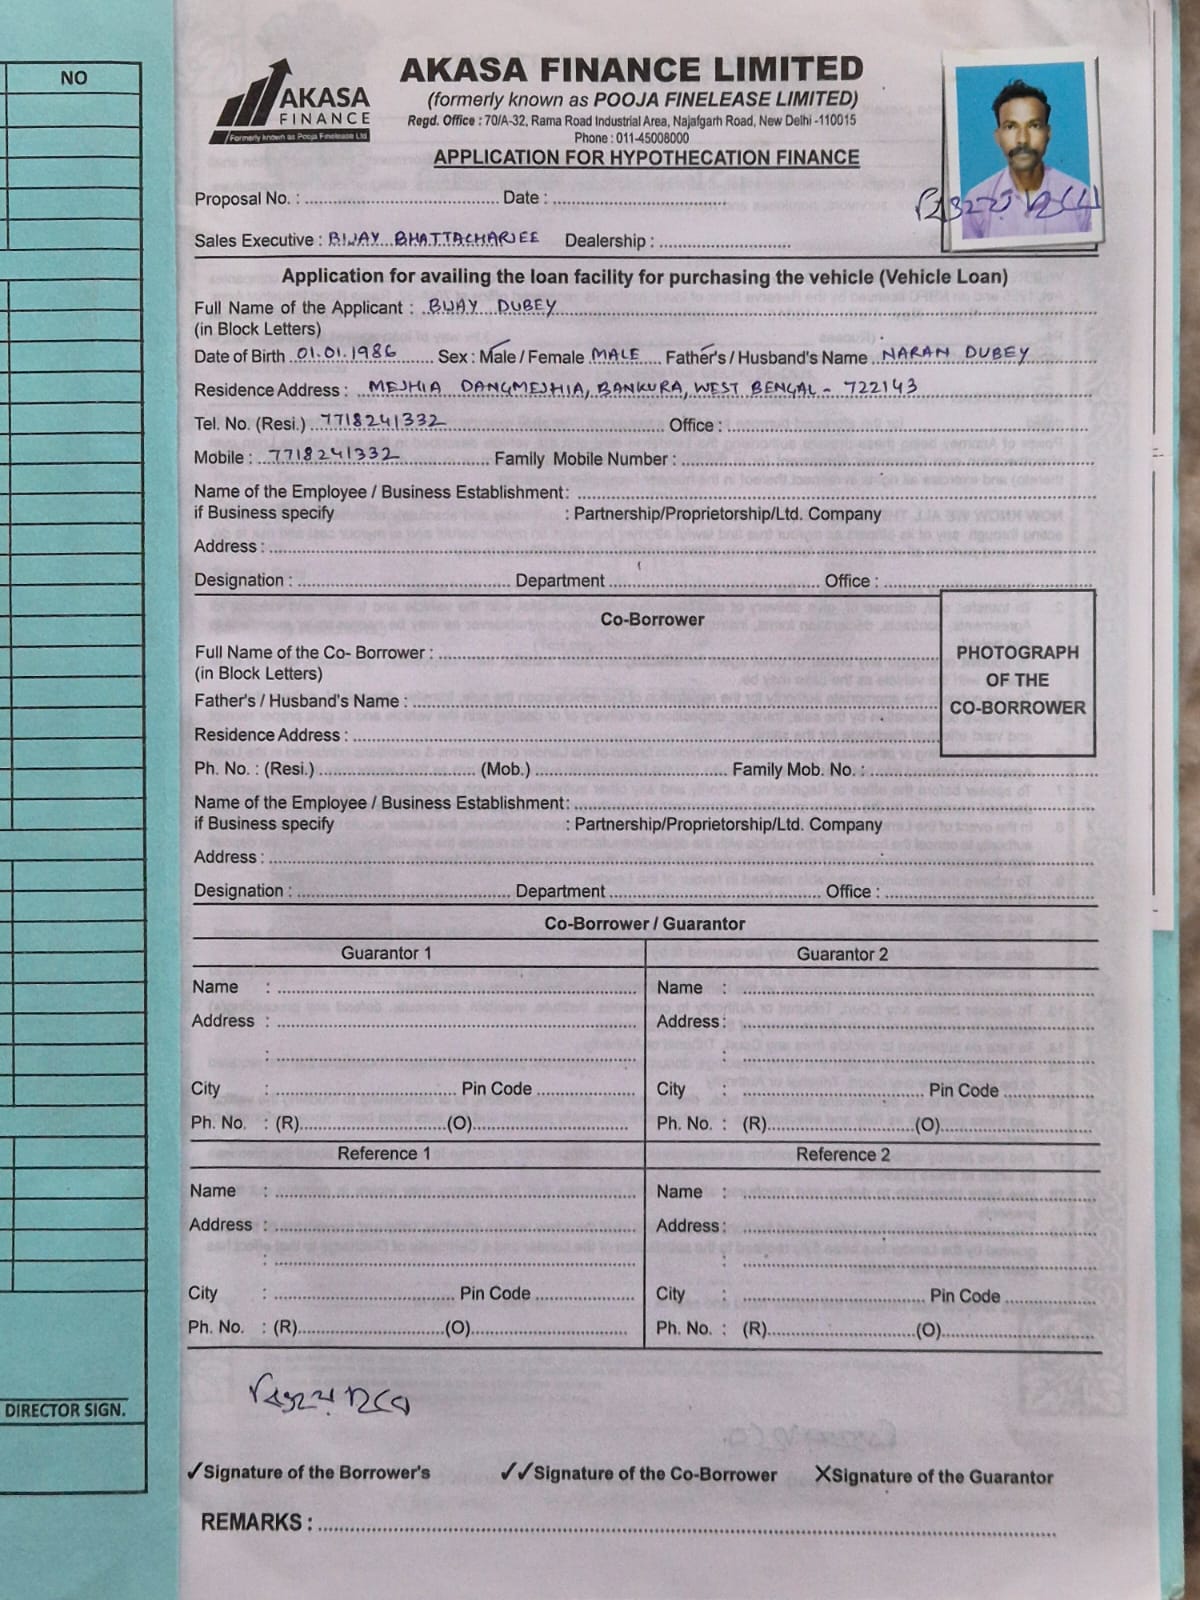 NO
DIRECTOR SIGN.
AKASA
FINANCE
Formerly known as Pooja Finelease Ltd
AKASA FINANCE LIMITED
(formerly known as POOJA FINELEASE LIMITED)
Regd. Office : 70/A-32, Rama Road Industrial Area, Najafgarh Road, New Delhi -110015
Phone : 011-45008000
APPLICATION FOR HYPOTHECATION FINANCE
Proposal No. : Date :
Sales Executive : BIJAY BHATTACHARJEE Dealership :
বিজয় দুবে
Application for availing the loan facility for purchasing the vehicle (Vehicle Loan)
Full Name of the Applicant : BIJAY DUBEY
(in Block Letters)
Date of Birth 01.01.1986 Sex : Male / Female MALE Father's / Husband's Name NARAN DUBEY
Residence Address : MEJHIA DANGMEJHIA, BANKURA, WEST BENGAL - 722143
Tel. No. (Resi.) 7718241332 Office :
Mobile : 7718241332 Family Mobile Number :
Name of the Employee / Business Establishment:
if Business specify : Partnership/Proprietorship/Ltd. Company
Address :
Designation : Department Office :
Co-Borrower
Full Name of the Co- Borrower :
(in Block Letters)
Father's / Husband's Name :
Residence Address :
Ph. No. : (Resi.) (Mob.) Family Mob. No. :
PHOTOGRAPH
OF THE
CO-BORROWER
Name of the Employee / Business Establishment:
if Business specify : Partnership/Proprietorship/Ltd. Company
Address :
Designation : Department Office :
Co-Borrower / Guarantor
Guarantor 1 Guarantor 2
Name : Name :
Address : Address :
: :
City : Pin Code City : Pin Code
Ph. No. : (R) (O) Ph. No. : (R) (O)
Reference 1 Reference 2
Name : Name :
Address : Address :
: :
City : Pin Code City : Pin Code
Ph. No. : (R) (O) Ph. No. : (R) (O)
বিজয় দুবে
✓Signature of the Borrower's ✓✓Signature of the Co-Borrower XSignature of the Guarantor
REMARKS :